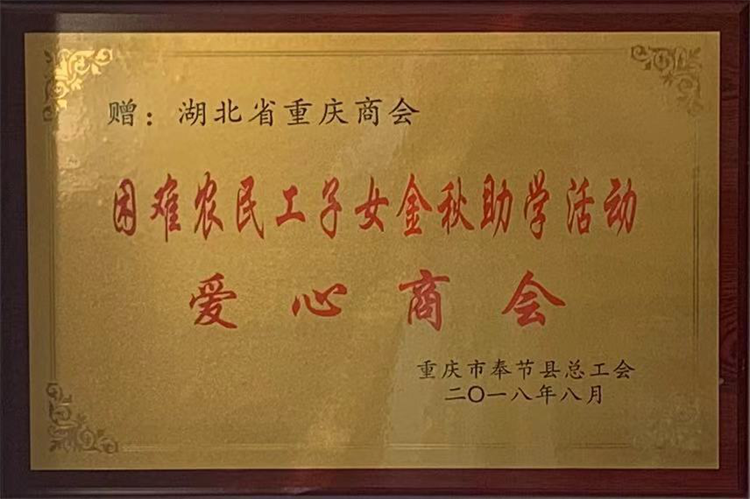 赠：湖北省重庆商会
困难农民工子女金秋助学活动
爱心商会
重庆市奉节县总工会
二〇一八年八月